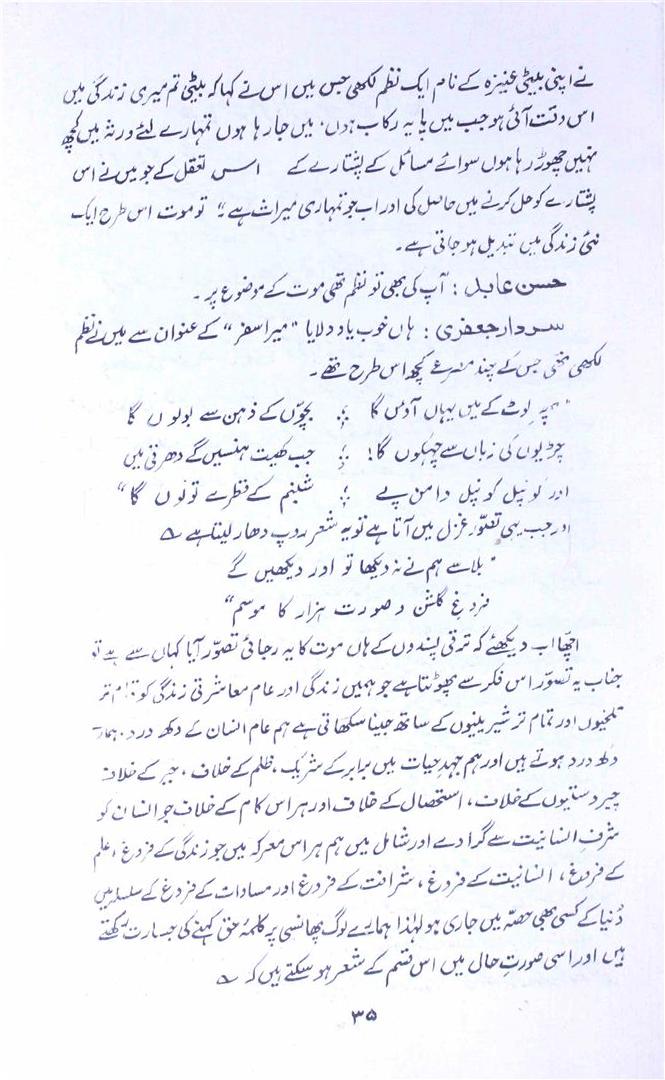 نے اپنی بیٹی عنیزہ کے نام ایک نظم لکھی جس میں اس نے کہا کہ بیٹی تم میری زندگی میں
اس وقت آئی ہو جب میں پا بہ رکاب ہوں۔ میں جا رہا ہوں تمہارے لئے ورثہ میں کچھ
نہیں چھوڑ رہا ہوں سوائے مسائل کے پشتارے کے اس تعقل کے جو میں نے اس
پشتارے کو حل کرنے میں حاصل کی اور اب جو تمہاری میراث ہے" تو موت اس طرح ایک
نئی زندگی میں تبدیل ہو جاتی ہے۔
حسن عابد : آپ کی بھی تو نظم تھی موت کے موضوع پر۔
سردار جعفری : ہاں خوب یاد دلایا "میرا سفر" کے عنوان سے میں نے نظم
لکھی تھی جس کے چند مصرعے کچھ اس طرح تھے۔
"پھر لوٹ کے میں یہاں آؤں گا ؛ بچّوں کے ذہن سے بولوں گا
چڑیوں کی زباں سے چہکوں گا! ؛ جب کھیت ہنسیں گے دھرتی میں
اور کونپل کونپل دامن پہ ؛ شبنم کے قطرے تولوں گا"
اور جب یہی تصوّر غزل میں آتا ہے تو یہ شعر روپ دھار لیتا ہے ؎
"بلا سے ہم نے نہ دیکھا تو اور دیکھیں گے
فروغِ گلشن و صورت ہزار کا موسم"
اچھا اب دیکھئے کہ ترقی پسندوں کے ہاں موت کا یہ رجائی تصوّر آیا کہاں سے ہے تو
جناب یہ تصوّر اس فکر سے پھوٹتا ہے جو ہمیں زندگی اور عام معاشرتی زندگی کو تمام تر
تلخیوں اور تمام تر شیرینیوں کے ساتھ جینا سکھاتی ہے ہم عام انسان کے دکھ درد، ہمارے
دکھ درد ہوتے ہیں اور ہم جہدِ حیات میں برابر کے شریک، ظلم کے خلاف، جبر کے خلاف
چیرہ دستیوں کے خلاف، استحصال کے خلاف اور ہر اس کام کے خلاف جو انسان کو
شرفِ انسانیت سے گرا دے اور شامل ہیں ہم ہر اس معرکہ میں جو زندگی کے فروغ، علم
کے فروغ، انسانیت کے فروغ، شرافت کے فروغ اور مساوات کے فروغ کے سلسلہ میں
دُنیا کے کسی بھی حصّہ میں جاری ہو لہٰذا ہمارے لوگ پھانسی پر کلمۂ حق کہنے کی جسارت رکھتے
ہیں اور اسی صورتِ حال میں اس قسم کے شعر ہو سکتے ہیں کہ ؎
۳۵